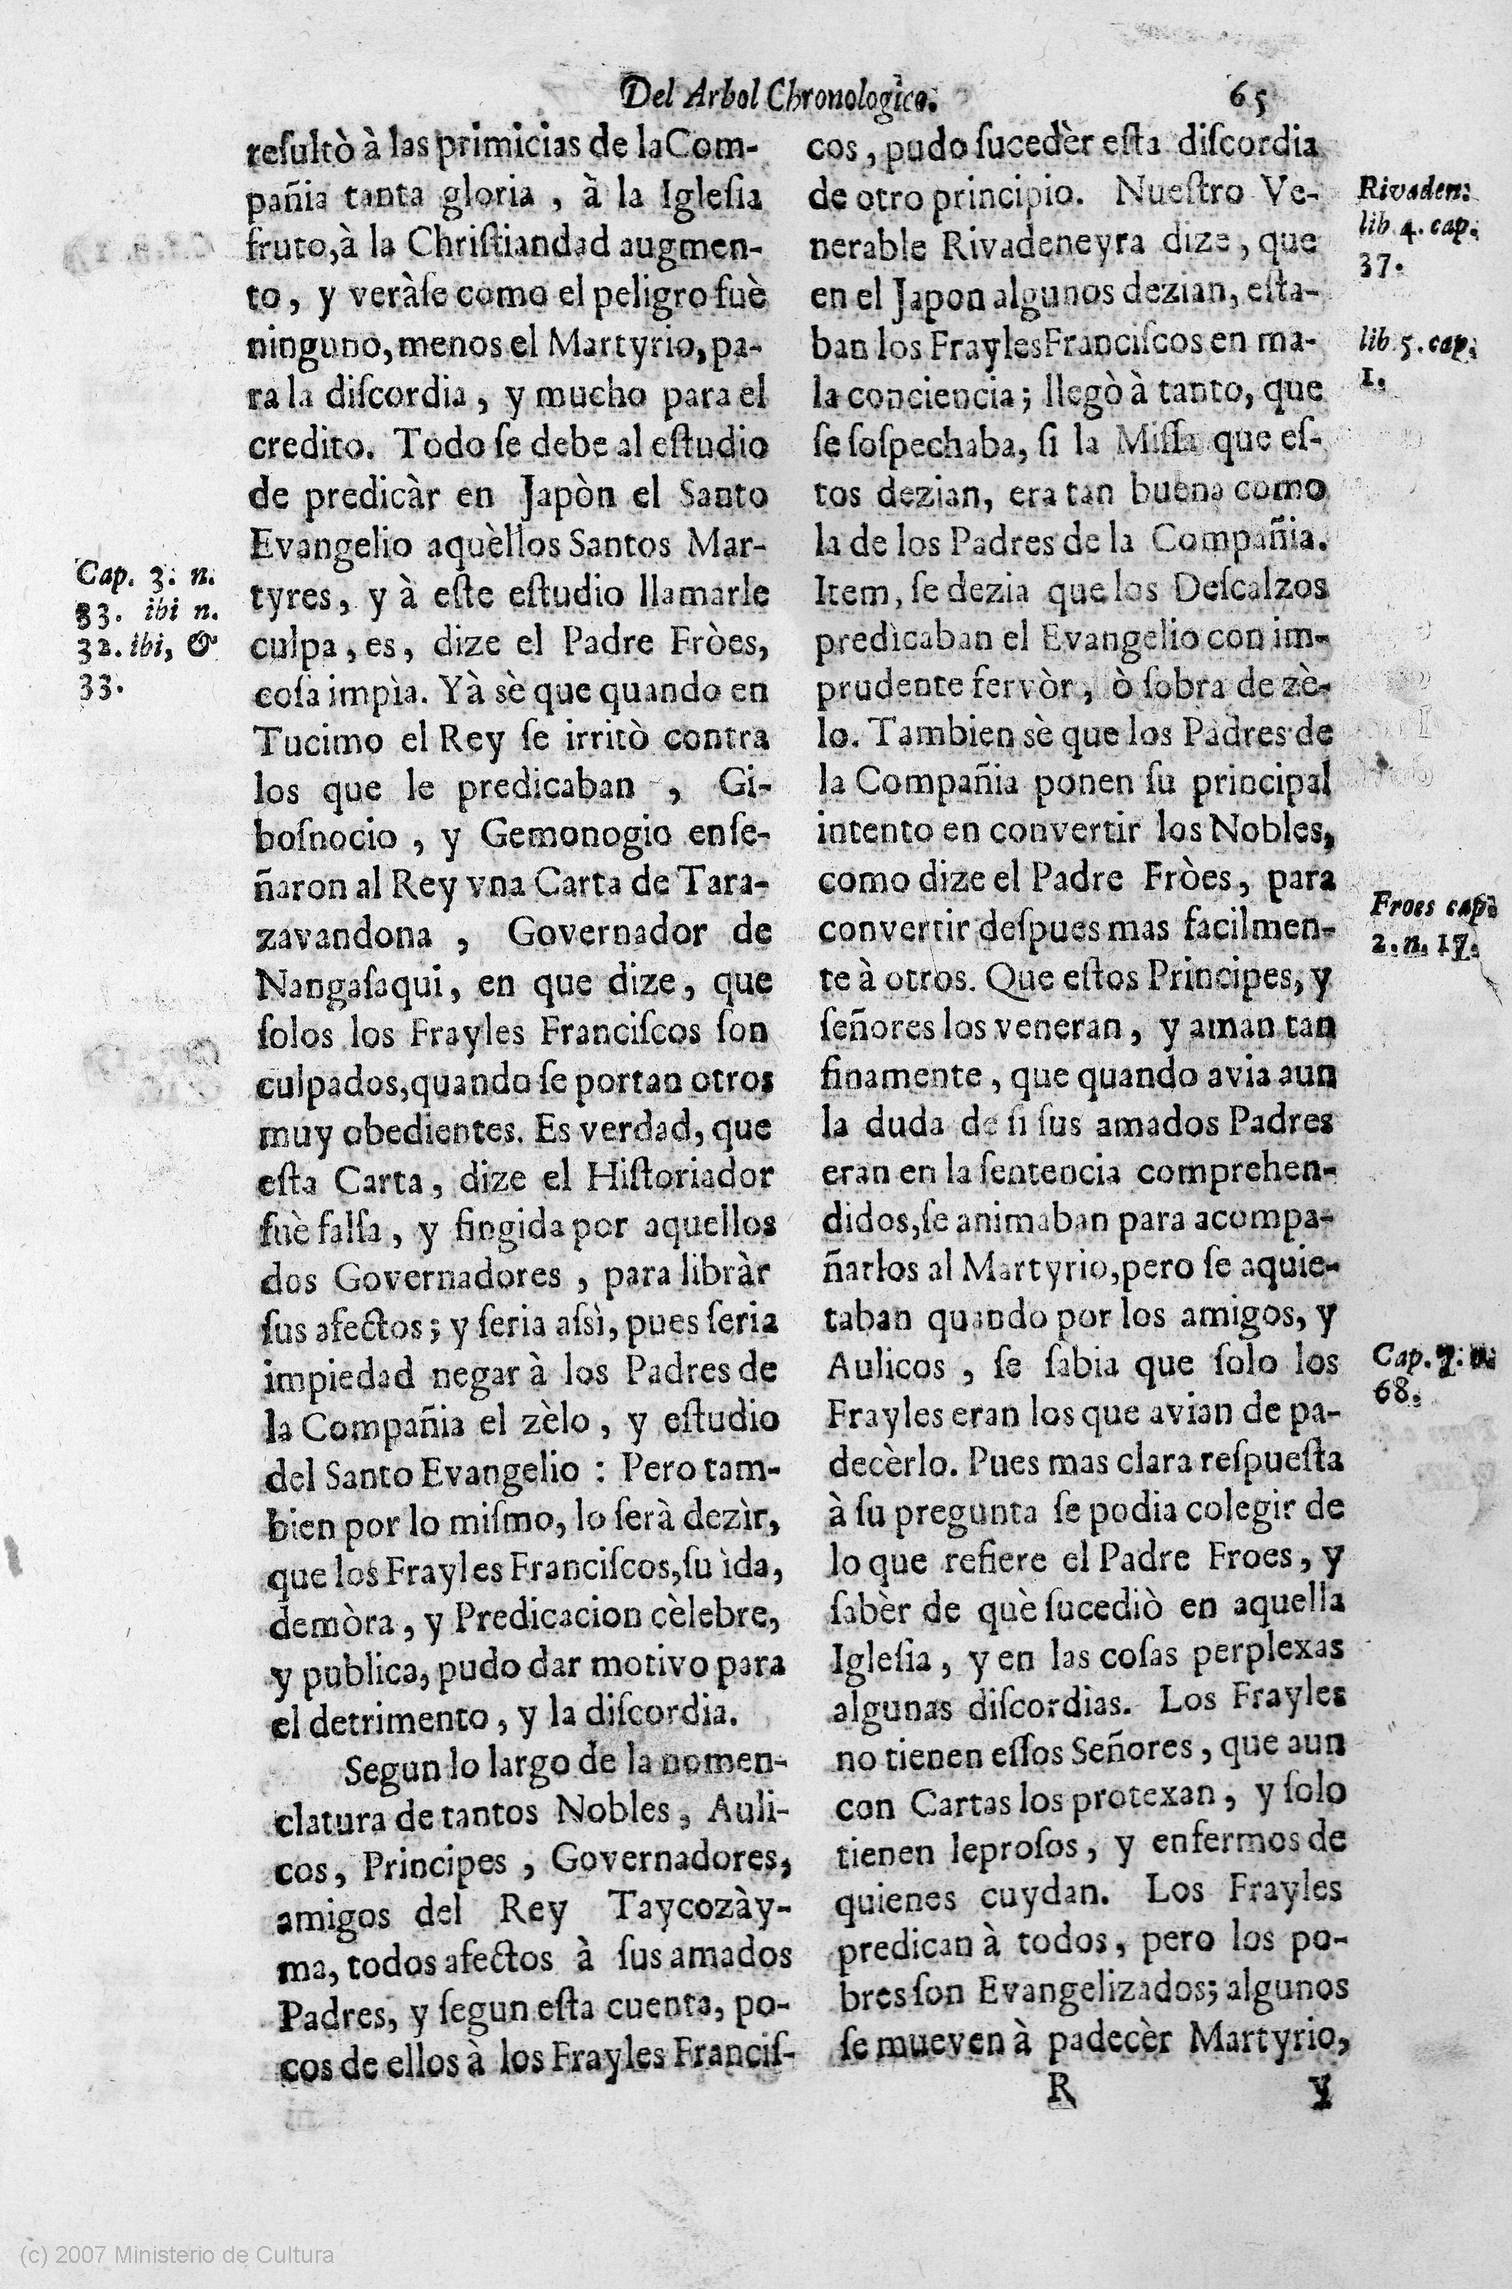 Del Arbol Chronologico. 65
resultò à las primicias de la Com-
pañia tanta gloria, à la Iglesia
fruto, à la Christiandad augmen-
to, y veràse como el peligro fuè
ninguno, menos el Martyrio, pa-
ra la discordia, y mucho para el
credito. Todo se debe al estudio
de predicàr en Japòn el Santo
Evangelio aquèllos Santos Mar-
tyres, y à este estudio llamarle
culpa, es, dize el Padre Fròes,
cosa impìa. Yà sè que quando en
Tucimo el Rey se irritò contra
los que le predicaban, Gi-
bosnocio, y Gemonogio ense-
ñaron al Rey vna Carta de Tara-
zavandona, Governador de
Nangasaqui, en que dize, que
solos los Frayles Franciscos son
culpados, quando se portan otros
muy obedientes. Es verdad, que
esta Carta, dize el Historiador
fuè falsa, y fingida por aquellos
dos Governadores, para libràr
sus afectos; y seria assì, pues seria
impiedad negar à los Padres de
la Compañia el zèlo, y estudio
del Santo Evangelio: Pero tam-
bien por lo mismo, lo serà dezìr,
que los Frayles Franciscos, su ìda,
demòra, y Predicacion cèlebre,
y publica, pudo dar motivo para
el detrimento, y la discordia.
Segun lo largo de la nomen-
clatura de tantos Nobles, Auli-
cos, Principes, Governadores,
amigos del Rey Taycozày-
ma, todos afectos à sus amados
Padres, y segun esta cuenta, po-
cos de ellos à los Frayles Francis-
Cap. 3. n.
33. ibi n.
32. ibi, &
33.
cos, pudo sucedèr esta discordia
de otro principio. Nuestro Ve-
nerable Rivadeneyra dize, que
en el Japon algunos dezian, esta-
ban los Frayles Franciscos en ma-
la conciencia; llegò à tanto, que
se sospechaba, si la Missa que es-
tos dezian, era tan buena como
la de los Padres de la Compañia.
Item, se dezia que los Descalzos
predicaban el Evangelio con im-
prudente fervòr, ò sobra de zè-
lo. Tambien sè que los Padres de
la Compañia ponen su principal
intento en convertir los Nobles,
como dize el Padre Fròes, para
convertir despues mas facilmen-
te à otros. Que estos Principes, y
señores los veneran, y aman tan
finamente, que quando avia aun
la duda de si sus amados Padres
eran en la sentencia comprehen-
didos, se animaban para acompa-
ñarlos al Martyrio, pero se aquie-
taban quando por los amigos, y
Aulicos, se sabia que solo los
Frayles eran los que avian de pa-
decèrlo. Pues mas clara respuesta
à su pregunta se podia colegir de
lo que refiere el Padre Froes, y
sabèr de què sucediò en aquella
Iglesia, y en las cosas perplexas
algunas discordias. Los Frayles
no tienen essos Señores, que aun
con Cartas los protexan, y solo
tienen leprosos, y enfermos de
quienes cuydan. Los Frayles
predican à todos, pero los po-
bres son Evangelizados; algunos
se mueven à padecèr Martyrio,
R y
Rivaden.
lib 4. cap.
37.
lib. 5. cap.
1.
Froes cap.
2. n. 17.
Cap. 7. n.
68.
(c) 2007 Ministerio de Cultura